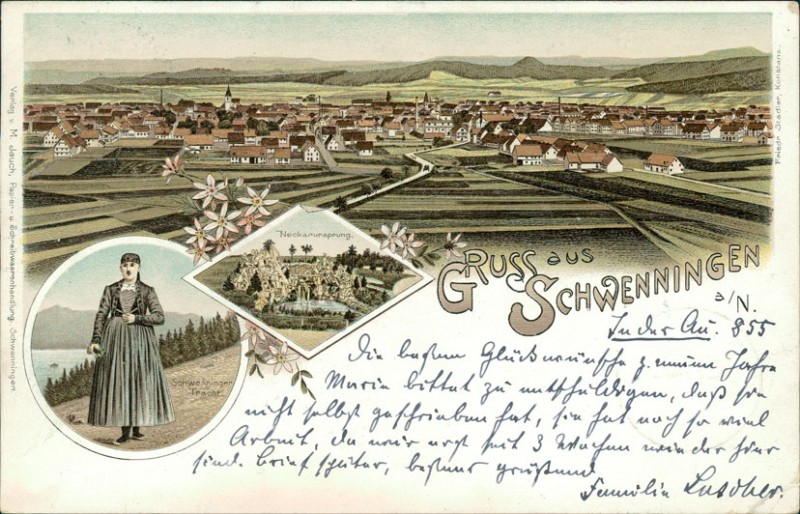 Neckarursprung.
GRUSS aus SCHWENNINGEN
a/N.
Schwenninger
Tracht.
In der Au. 855
Die besten Glückwünsche z. neuen Jahre
Maria bittet zu entschuldigen, daß sie
nicht selbst geschrieben hat, sie hat noch so viel
Arbeit, da wir erst seit 3 Wochen wieder hier
sind. Brief später, bestens grüßend
Familie
Verlag v. M. Jauch, Papier- u. Schreibwaarenhandlung, Schwenningen
Friedr. Stadler, Konstanz.